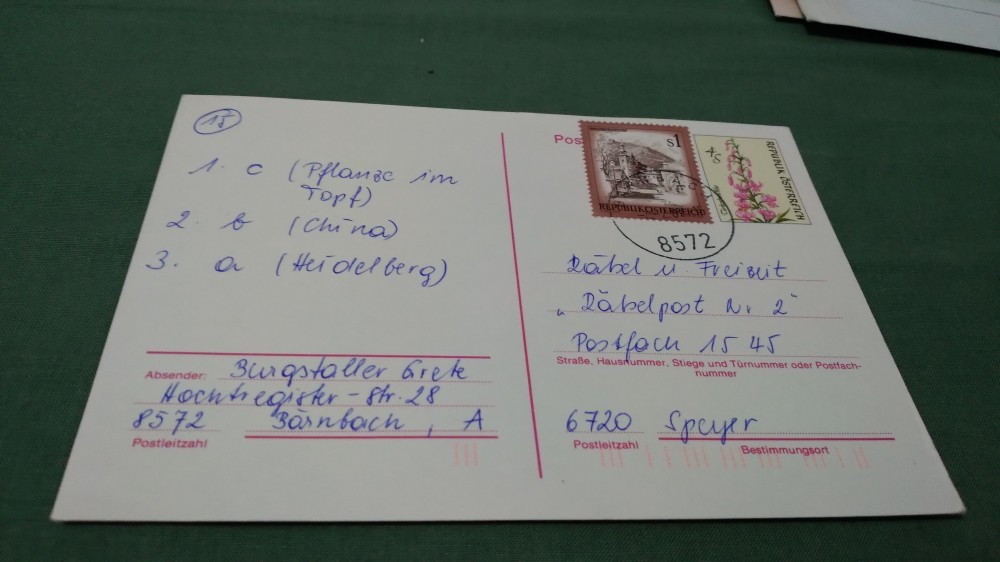 15
1. c (Pflanze im
Topf)
2. b (China)
3. a (Heidelberg)
Absender: Burgstaller Grete
Hochtregister-Str. 28
8572 Bärnbach, A
Postleitzahl
Pos
S1
REPUBLIK ÖSTERREICH
8572
S4
REPUBLIK ÖSTERREICH
Rätsel u. Freizeit
"Rätselpost Nr. 2"
Postfach 15 45
Straße, Hausnummer, Stiege und Türnummer oder Postfach-
nummer
6720 Speyer
Postleitzahl
Bestimmungsort